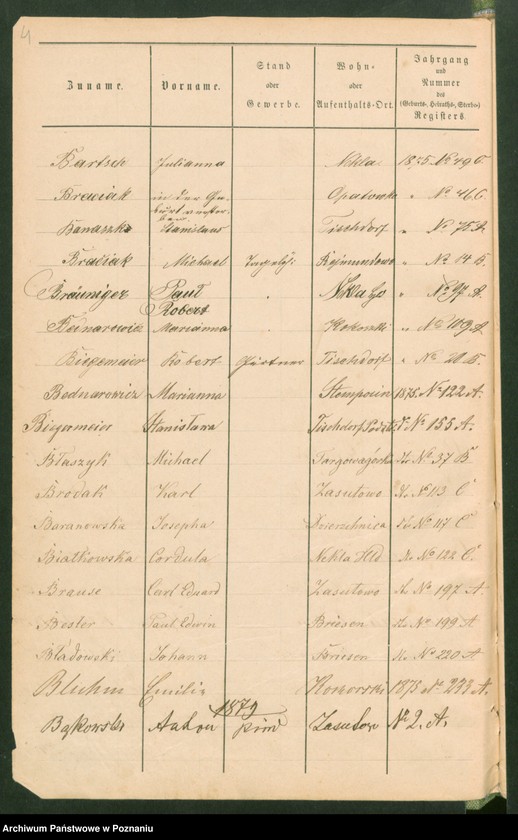 4
Zuname.
Vorname.
Stand
oder
Gewerbe.
Wohn-
oder
Aufenthalts-Ort.
Jahrgang
und
Nummer
des
(Geburts-, Heiraths-, Sterbe-)
Registers.
Bartsch Julianna Nekla 1875 No 49 C
Braciak in der Ge- Opatowko " No 46 C
burt verstor-
ben
Banaszke Stanislaus Tischdorf " No 75 A.
Braciak Michael Tagelh. " No 14 B.
Bräuniger Paul Nekla " No 97 A.
Robert
Bednarowicz Marianna " No 109 A
Biegemeier Robert Gärtner Tischdorf " No 20 B.
Bednarowicz Marianna Stempocin 1875. No 122 A.
Biegemeier Stanislawa Tischdorf No 155 A.
Błaszyk Michael Targowagórka No 37 B
Brodak Karl Zasutowo No 113 C
Baranowska Josepha Dzierznica No 117 C
Białkowska Cordula Nekla Hld No 122 C
Brause Carl Eduard Zasutowo No 197 A.
Bester Paul Edwin Briesen No 199 A
Bładowski Johann Briesen No 220 A
Bluhm Emilie 1875 No 233 A.
1879
Bąkowski Anton Zasutowo No 2. A.
Archiwum Państwowe w Poznaniu